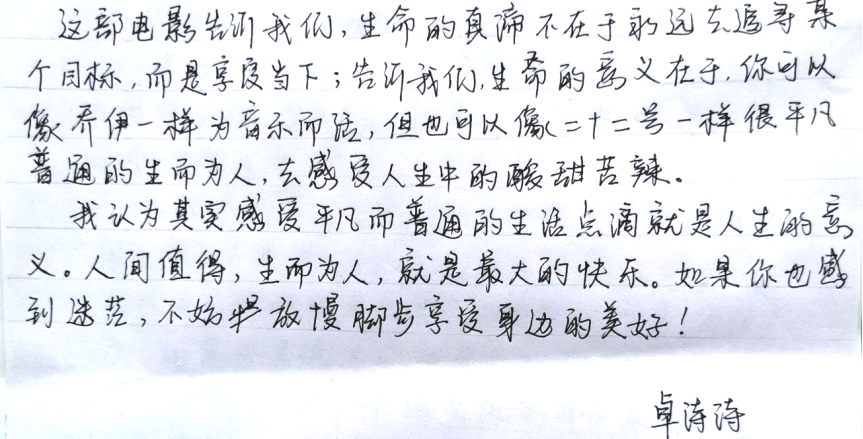 这部电影告诉我们，生命的真谛不在于永远去追寻某
个目标，而是享受当下；告诉我们，生命的意义在于，你可以
像乔伊一样为音乐而活，但也可以像二十二号一样很平凡
普通的生而为人，去感受人生中的酸甜苦辣。
我认为其实感受平凡而普通的生活点滴就是人生的意
义。人间值得，生而为人，就是最大的快乐。如果你也感
到迷茫，不妨放慢脚步享受身边的美好！
卓诗诗